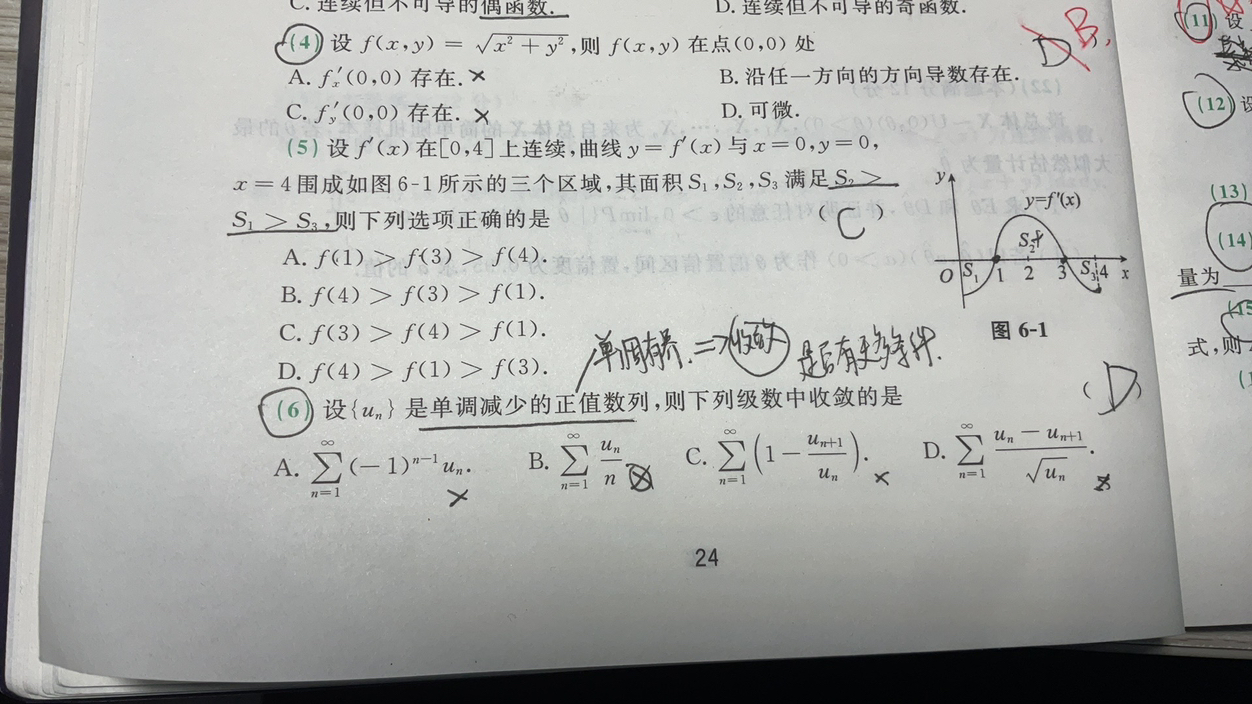 C. 连续但不可导的偶函数.
D. 连续但不可导的奇函数.
(4) 设 f(x,y) = √(x² + y²),则 f(x,y) 在点(0,0) 处
D B.
A. fₓ′(0,0) 存在. ×
B. 沿任一方向的方向导数存在.
C. f_y′(0,0) 存在. ×
D. 可微.
(5) 设 f′(x) 在[0,4] 上连续,曲线 y = f′(x) 与 x = 0, y = 0,
x = 4 围成如图 6-1 所示的三个区域,其面积 S₁,S₂,S₃ 满足 S₂ >
S₁ > S₃,则下列选项正确的是
( C )
A. f(1) > f(3) > f(4).
B. f(4) > f(3) > f(1).
C. f(3) > f(4) > f(1).
D. f(4) > f(1) > f(3).
y
y=f′(x)
S₂
O S₁ 1 2 3 S₃ 4 x
图 6-1
单调有界 ⇒ 收敛 是否有更多条件.
(6) 设{uₙ} 是单调减少的正值数列,则下列级数中收敛的是
( D )
A. ∑_{n=1}^{∞} (−1)ⁿ⁻¹uₙ. ×
B. ∑_{n=1}^{∞} uₙ/n ⊗
C. ∑_{n=1}^{∞} (1 − uₙ₊₁/uₙ). ×
D. ∑_{n=1}^{∞} (uₙ − uₙ₊₁)/√uₙ.
24
(11) 设
(12) 设
(13)
(14)
量为
(15
式,则